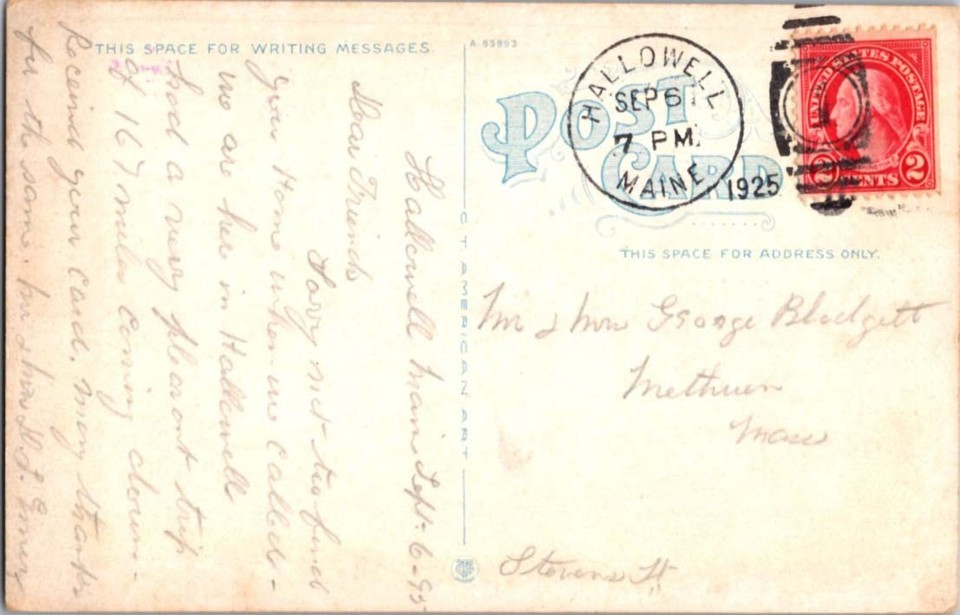 THIS SPACE FOR WRITING MESSAGES
A-95993
POST CARD
HALLOWELL
SEP 6
7 PM.
MAINE
1925
UNITED STATES POSTAGE
2 CENTS 2
THIS SPACE FOR ADDRESS ONLY.
C T AMERICAN ART
Hallowell Maine Sept-6-25
Dear Friends
Sorry not to find
you Home when we called-
we are here in Hallowell
had a very pleasant trip
of 167 miles coming down-
Received your card. many thanks
for the same. Mr & Mrs H. F. Emery
Mr & Mrs George Blodgett
Methuen
Mass
Stevens St